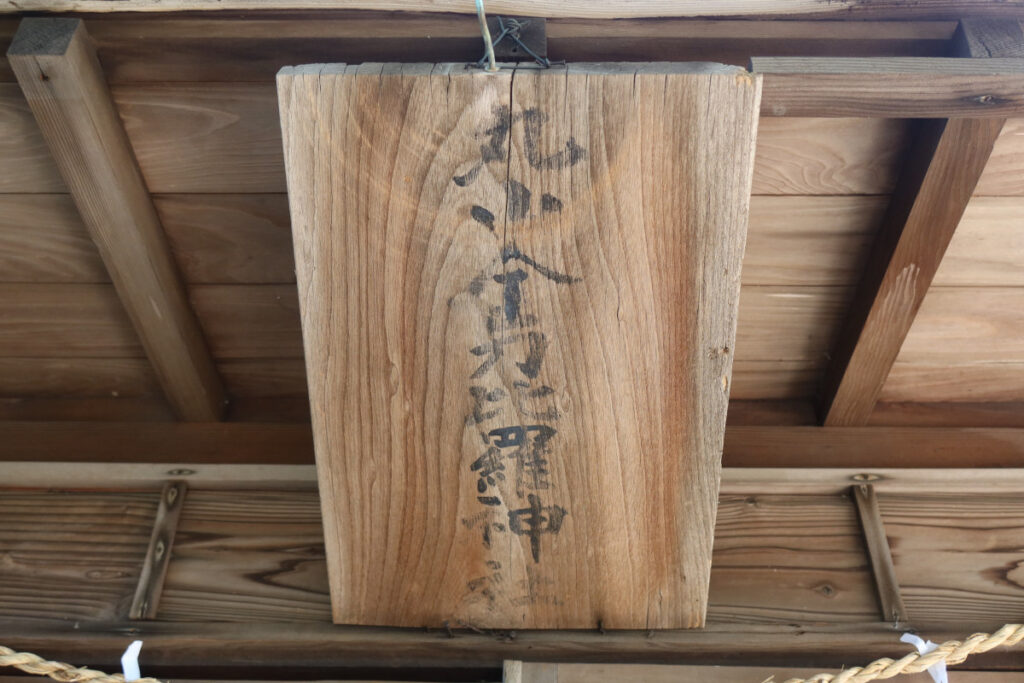 丸山金刀比羅神社